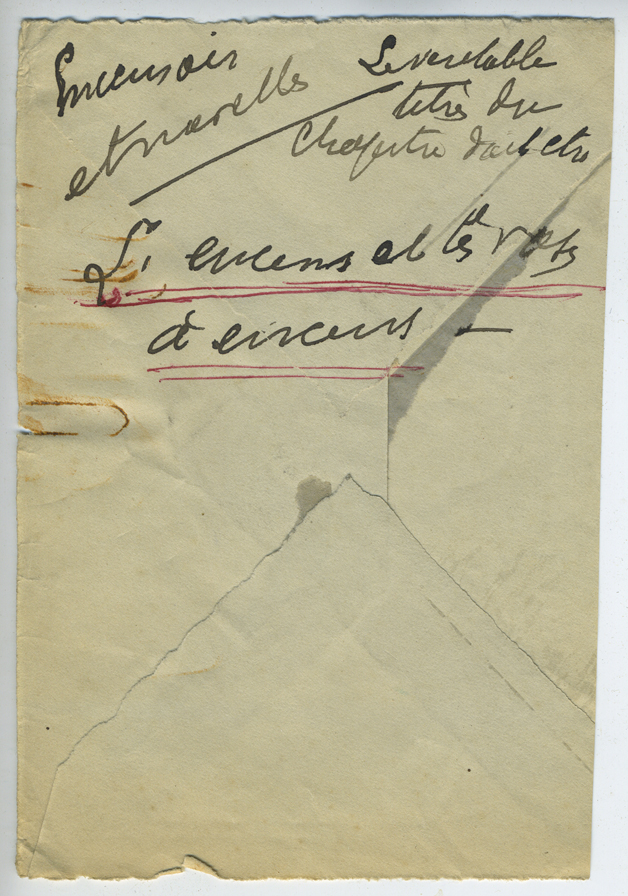 Encensoir
et navette
Le veritable
titre du
Chapitre doit etre
L'encens et les vases
à encens –